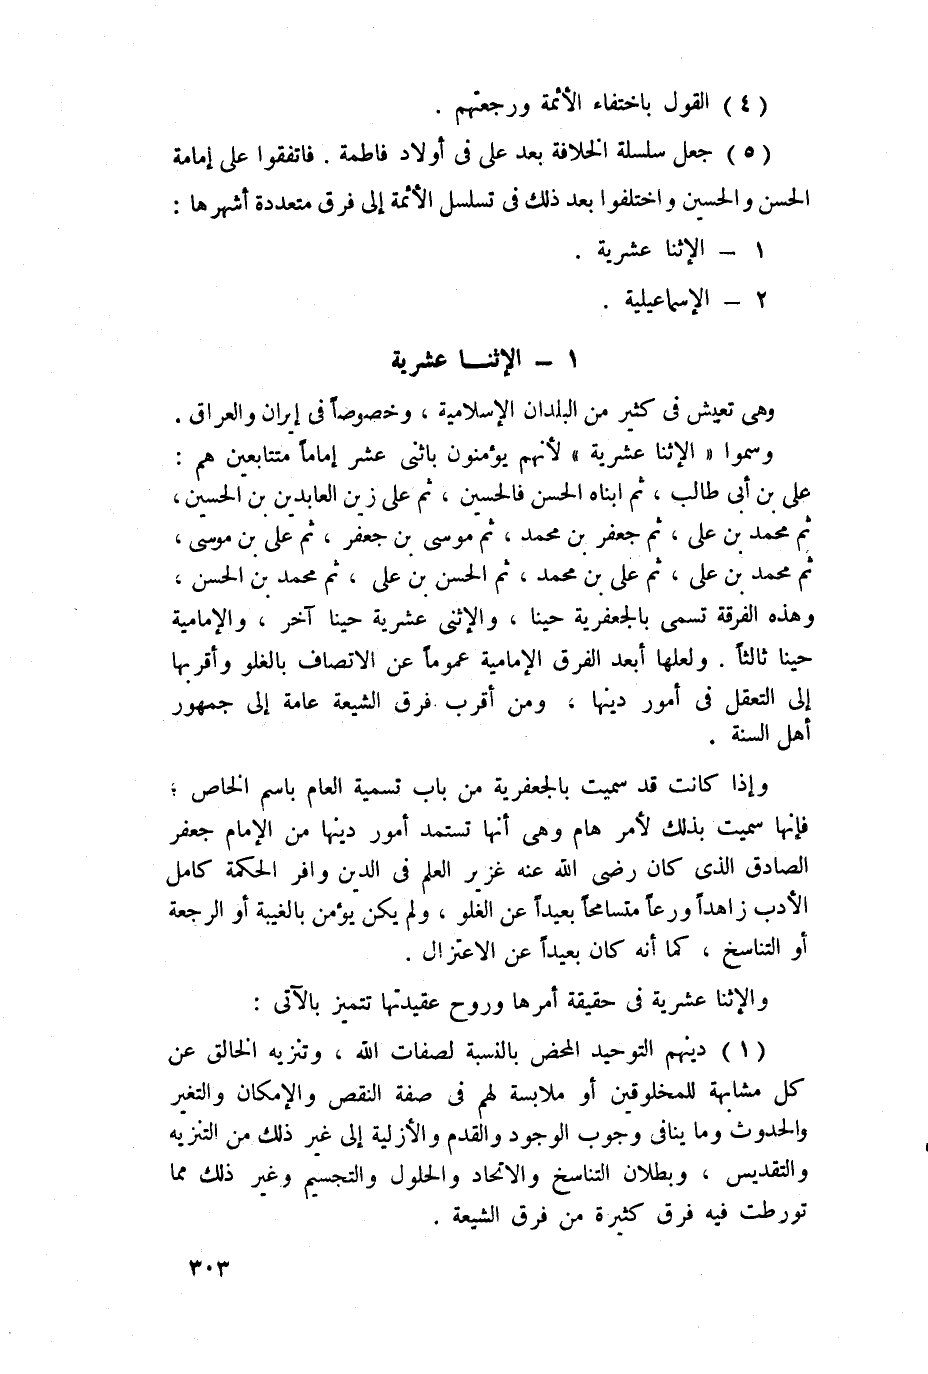 ( ٤ ) القول باختفاء الأئمة ورجعتهم .
( ٥ ) جعل سلسلة الخلافة بعد على فى أولاد فاطمة . فاتفقوا على إمامة
الحسن والحسين واختلفوا بعد ذلك فى تسلسل الأئمة إلى فرق متعددة أشهرها :
١ – الإثنا عشرية .
٢ – الإسماعيلية .
١ – الإثنــا عشرية
وهى تعيش فى كثير من البلدان الإسلامية ، وخصوصاً فى إيران والعراق .
وسموا « الإثنا عشرية » لأنهم يؤمنون باثنى عشر إماماً متتابعين هم :
على بن أبى طالب ، ثم ابناه الحسن فالحسين ، ثم على زين العابدين بن الحسين ،
ثم محمد بن على ، ثم جعفر بن محمد ، ثم موسى بن جعفر ، ثم على بن موسى ،
ثم محمد بن على ، ثم على بن محمد ، ثم الحسن بن على ، ثم محمد بن الحسن ،
وهذه الفرقة تسمى بالجعفرية حينا ، والإثنى عشرية حينا آخر ، والإمامية
حينا ثالثاً . ولعلها أبعد الفرق الإمامية عموماً عن الاتصاف بالغلو وأقربها
إلى التعقل فى أمور دينها ، ومن أقرب فرق الشيعة عامة إلى جمهور
أهل السنة .
وإذا كانت قد سميت بالجعفرية من باب تسمية العام باسم الخاص ؛
فإنها سميت بذلك لأمر هام وهى أنها تستمد أمور دينها من الإمام جعفر
الصادق الذى كان رضى الله عنه غزير العلم فى الدين وافر الحكمة كامل
الأدب زاهداً ورعاً متسامحاً بعيداً عن الغلو ، ولم يكن يؤمن بالغيبة أو الرجعة
أو التناسخ ، كما أنه كان بعيداً عن الاعتزال .
والإثنا عشرية فى حقيقة أمرها وروح عقيدتها تتميز بالآتى :
( ١ ) دينهم التوحيد المحض بالنسبة لصفات الله ، وتنزيه الخالق عن
كل مشابهة للمخلوقين أو ملابسة لهم فى صفة النقص والإمكان والتغير
والحدوث وما ينافى وجوب الوجود والقدم والأزلية إلى غير ذلك من التنزيه
والتقديس ، وبطلان التناسخ والاتحاد والحلول والتجسيم وغير ذلك مما
تورطت فيه فرق كثيرة من فرق الشيعة .
٣٠٣